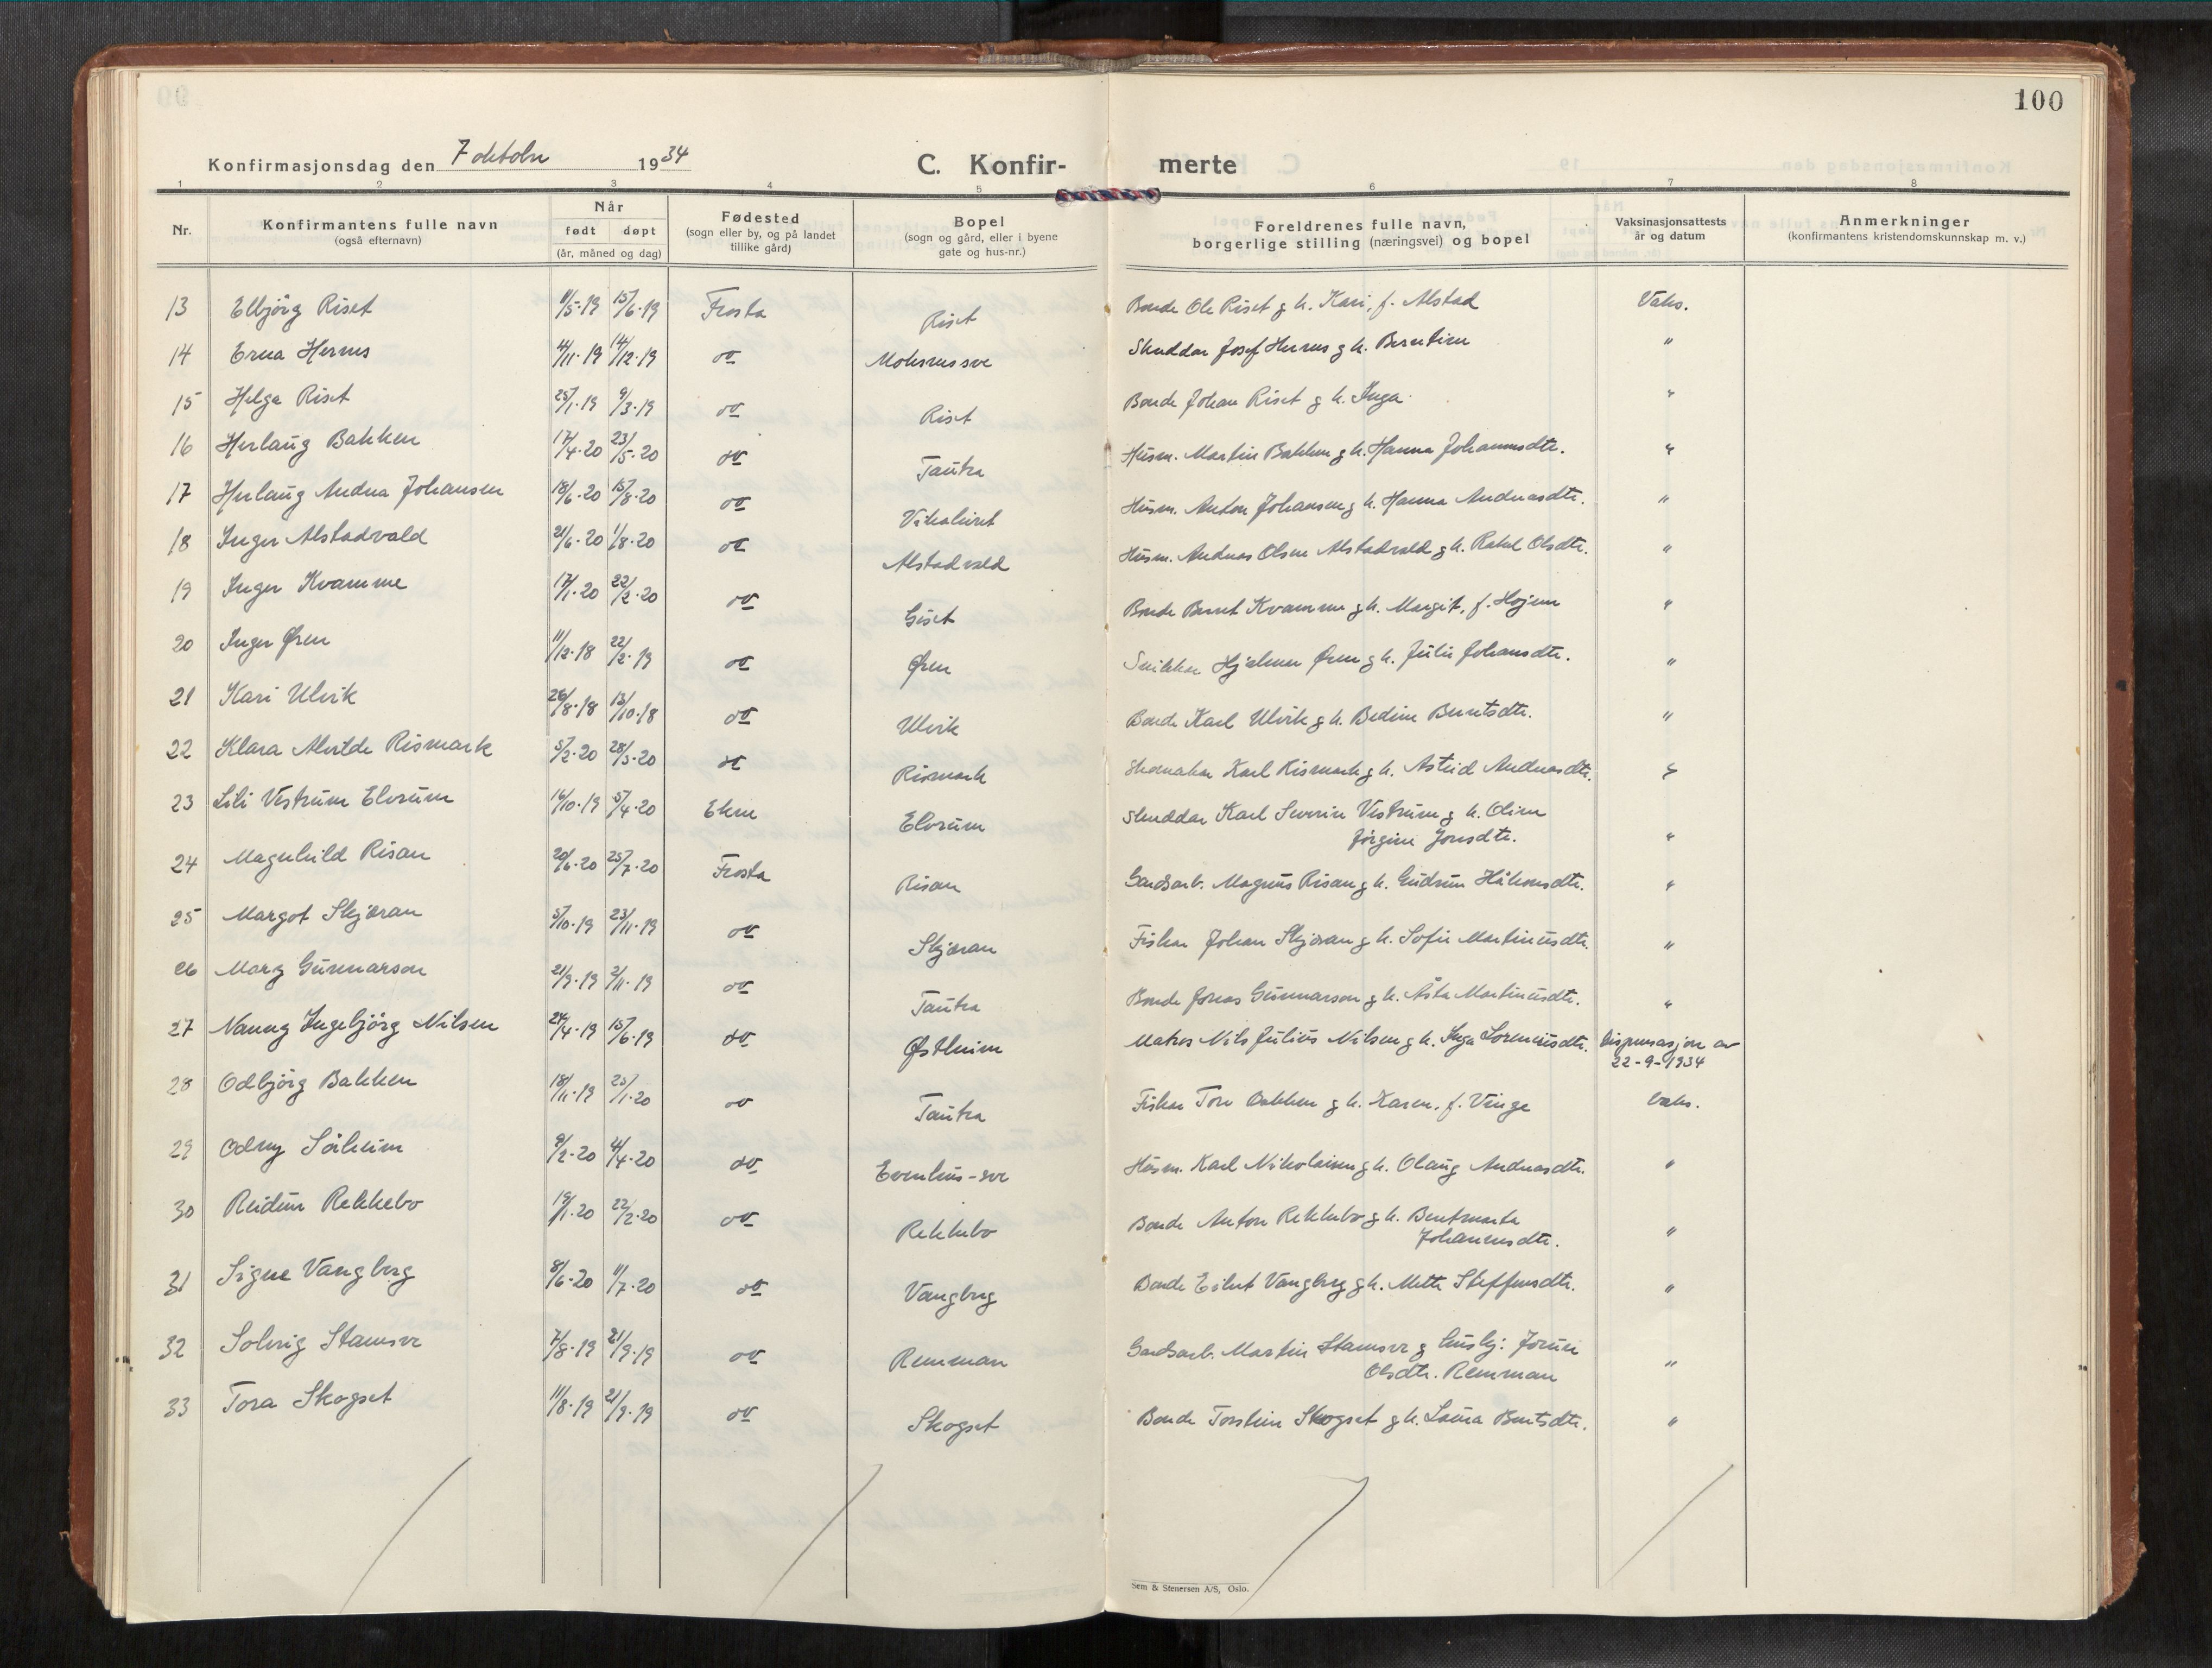 100
Konfirmasjonsdag den 7 oktober 1934
C. Konfir- merte
1 2 3 4 5 6 7 8
Nr.
Konfirmantens fulle navn
(også efternavn)
Når
født døpt
(år, måned og dag)
Fødested
(sogn eller by, og på landet
tillike gård)
Bopel
(sogn og gård, eller i byene
gate og hus-nr.)
Foreldrenes fulle navn,
borgerlige stilling (næringsvei) og bopel
Vaksinasjonsattests
år og datum
Anmerkninger
(konfirmantens kristendomskunnskap m. v.)
13 Elbjörg Riset 11/5-19 15/6-19 Frosta Riset Bonde Ole Riset g h. Kari, f. Alstad Vaks.
14 Erna Hernes 4/11-19 14/12-19 do Skreddar Josef Hernes g h. Berntine "
15 Helga Riset 25/1-19 9/3-19 do Riset Bonde Johan Riset g h. Inga "
16 Herlaug Bakken 17/4-20 23/5-20 do Tautra Husm. Martin Bakken g h. Hanna Johannesdtr. "
17 Herlaug Andrea Johansen 18/6-20 15/8-20 do Husm. Anton Johansen g h. Hanna Andreasdtr. "
18 Inger Alstadvald 21/6-20 1/8-20 do Alstadvald Husm. Andreas Olsen Alstadvald g h. Rakel Olsdtr. "
19 Inger Kvamme 17/1-20 22/2-20 do Giset Bonde Bernt Kvamme g h. Margit, f. Hojem "
20 Inger Øren 11/12-18 22/2-19 do Øren Snikkar Hjalmar Øren g h. Julie Johansdtr. "
21 Kari Ulvik 26/8-18 13/10-18 do Ulvik Bonde Karl Ulvik g h. Bedine Berntsdtr. "
22 Klara Alvilde Rismark 5/2-20 28/3-20 do Rismark Skomakar Karl Rismark g h. Astrid Andreasdtr. "
23 Lili Vestrum Elvrum 16/10-19 5/4-20 Ekne Elvrum Skreddar Karl Severin Vestrum g h. Oline
Jörgine Jonsdtr. "
24 Magnhild Risan 20/6-20 25/7-20 Frosta Risan Gardsarb. Magnus Risan g h. Gudrun Håkonsdtr. "
25 Margot Skjæran 5/10-19 23/11-19 do Skjæran Fiskar Johan Skjæran g h. Sofie Martinusdtr. "
26 Mary Gunnarson 21/9-19 2/11-19 do Tautra Bonde Jonas Gunnarson g h. Åsta Martinusdtr. "
27 Nanny Ingebjörg Nilsen 24/4-19 15/6-19 do Østheim Matros Nils Julius Nilsen g h. Inga Lorenusdtr. Dispensasjon av
22-9-1934
28 Odbjörg Bakken 18/11-19 25/1-20 do Tautra Fiskar Tore Bakken g h. Karen, f. Vinge Vaks.
29 Odny Solheim 9/2-20 4/4-20 do Evenhus-sve Husm. Karl Nikolaisen g h. Olaug Andreasdtr. "
30 Reidun Rekkebo 19/1-20 22/2-20 do Rekkebo Bonde Anton Rekkebo g h. Berntmarta
Johannesdtr. "
31 Signe Vangberg 8/6-20 11/7-20 do Vangberg Bonde Eilert Vangberg g h. Mette Steffensdtr. "
32 Solveig Stamsve 7/8-19 21/9-19 do Remman Gardsarb. Martin Stamsve g husbj: Jorun
Olsdtr. Remman "
33 Tora Skogset 11/8-19 21/9-19 do Skogset Bonde Torstein Skogset g h. Laura Berntsdtr. "
Sem & Stenersen A/S, Oslo.